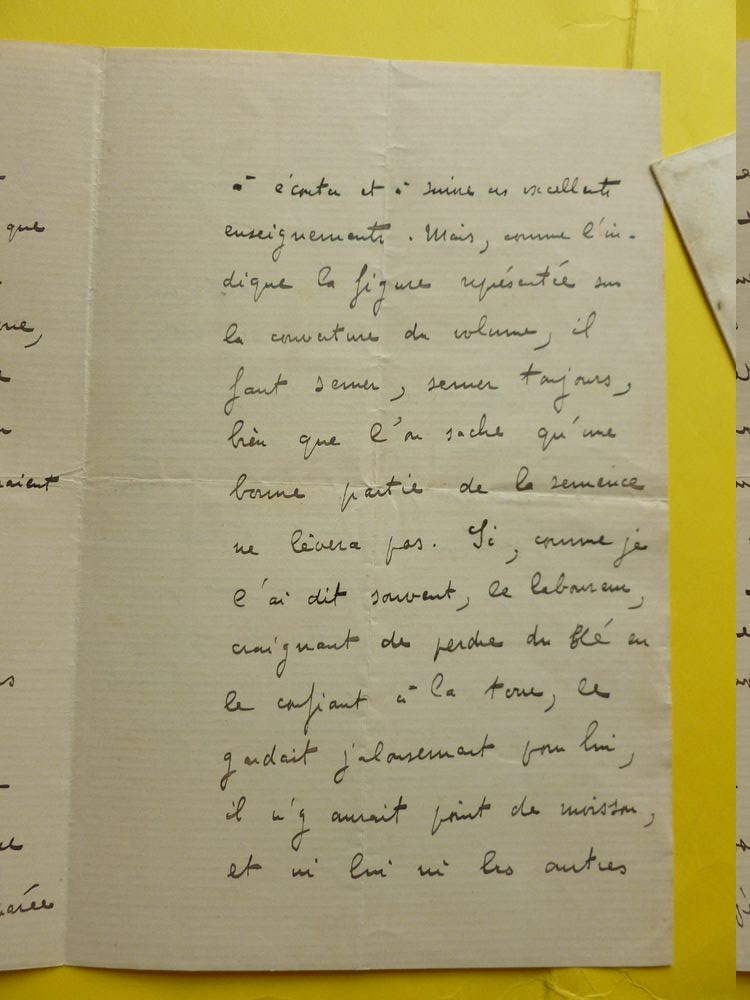 que
aient
à écouter et à suivre ces excellents
enseignements. Mais, comme l'in-
dique la figure représentée sur
la couverture du volume, il
faut semer, semer toujours,
bien que l'on sache qu'une
bonne partie de la semence
ne lèvera pas. Si, comme je
l'ai dit souvent, le laboureur,
craignant de perdre du blé en
le confiant à la terre, le
gardait jalousement pour lui,
il n'y aurait point de moisson,
et ni lui ni les autres